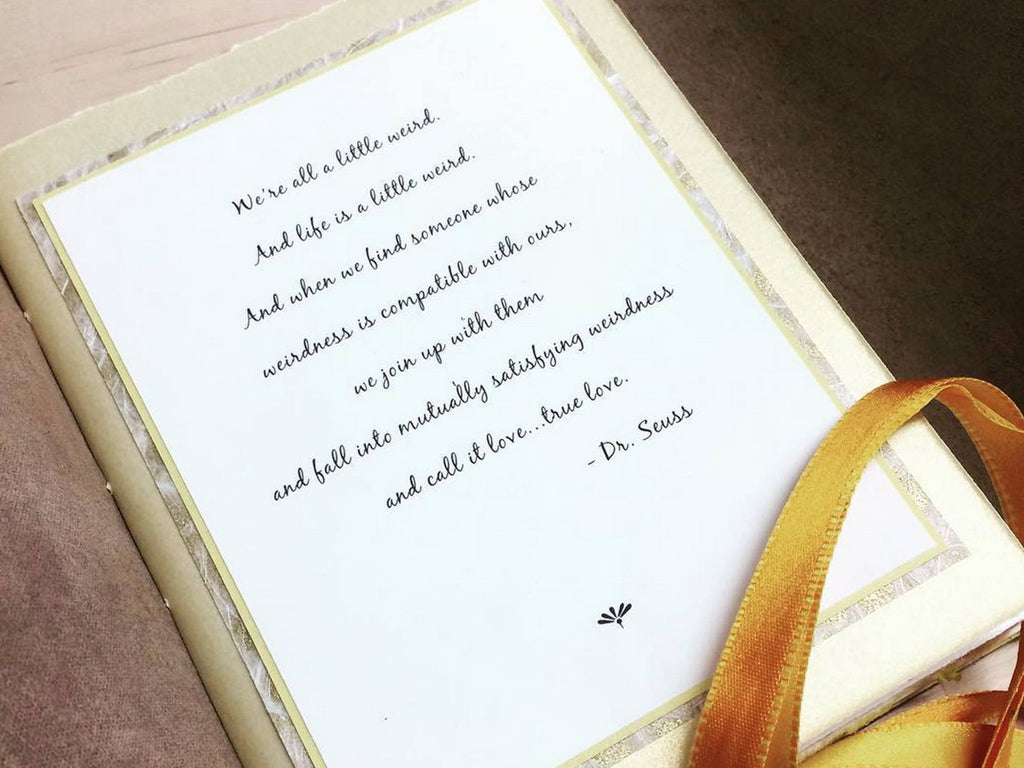 We're all a little weird.
And life is a little weird.
And when we find someone whose
weirdness is compatible with ours,
we join up with them
and fall into mutually satisfying weirdness
and call it love...true love.
- Dr. Seuss